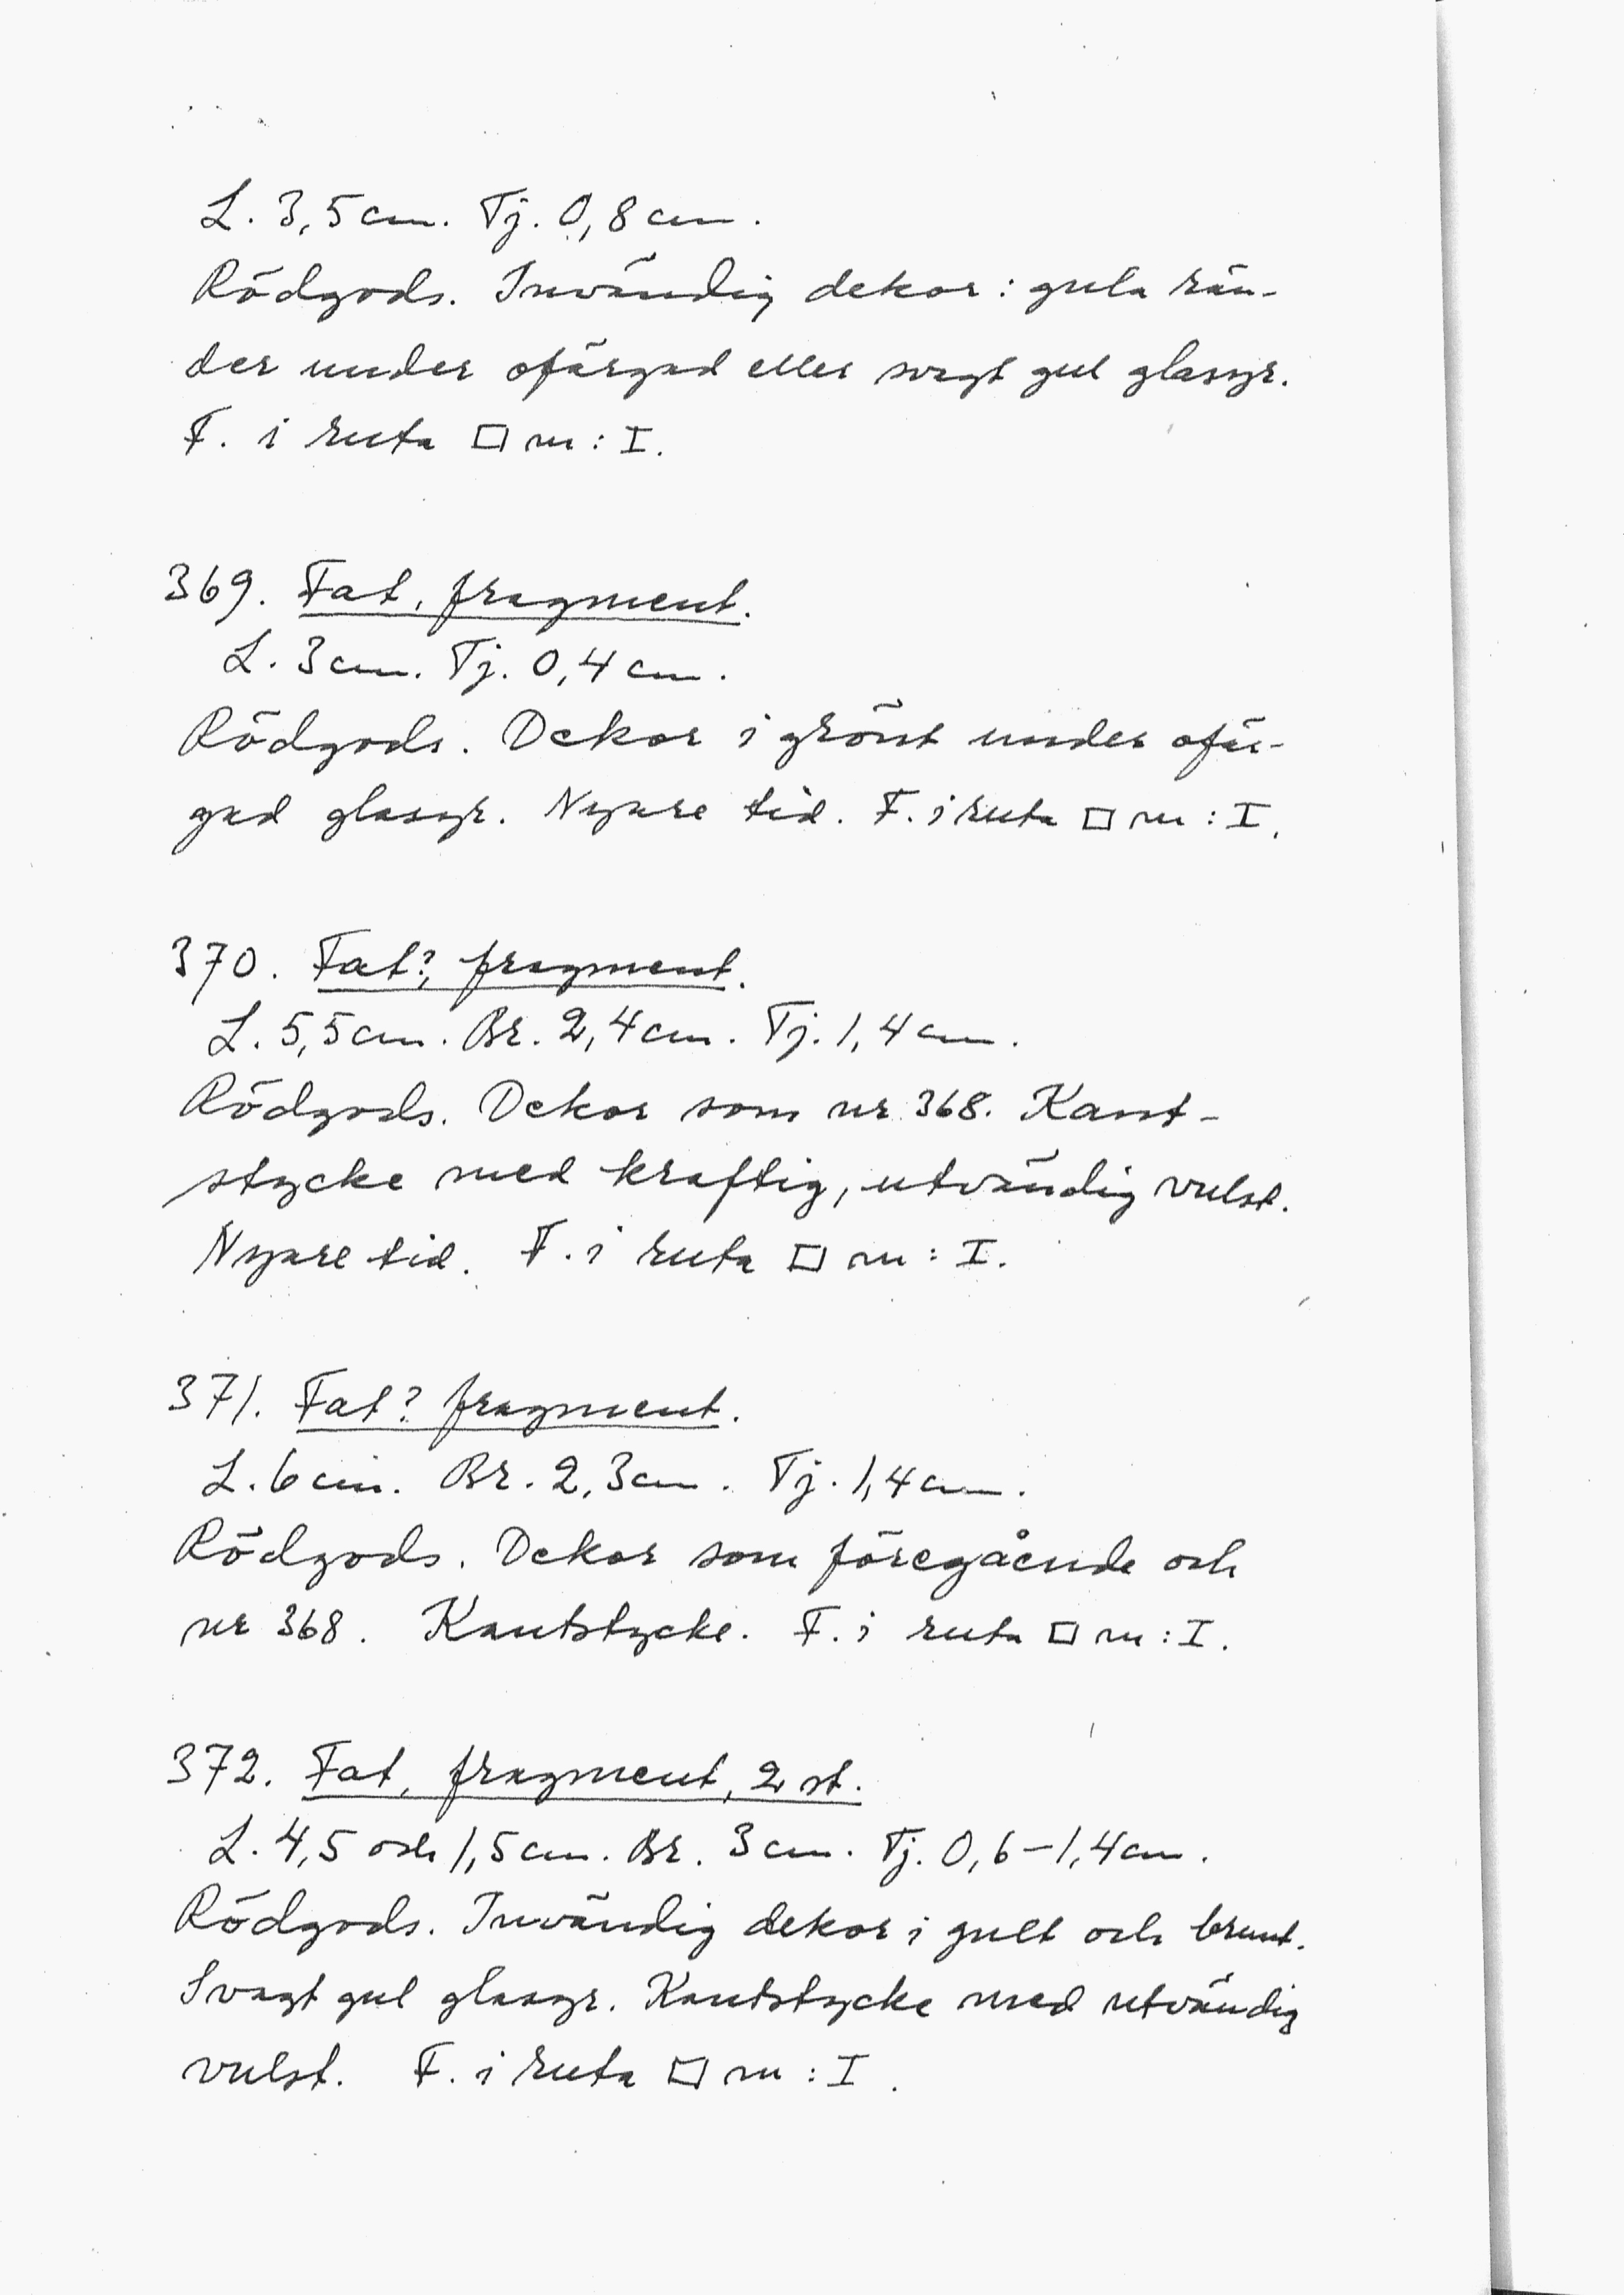 L. 3,5 cm. Tj. 0,8 cm.
Rödgods. Invändig dekor: gula rän-
der under ofärgad eller svagt gul glasyr.
F. i ruta □ m: I.
369. Fat, fragment.
L. 3 cm. Tj. 0,4 cm.
Rödgods. Dekor i grönt under ofär-
gad glasyr. Nyare tid. F. i ruta □ m: I.
370. Fat?, fragment.
L. 5,5 cm. Br. 2,4 cm. Tj. 1,4 cm.
Rödgods. Dekor som nr 368. Kant-
stycke med kraftig, utvändig vulst.
Nyare tid. F. i ruta □ m: I.
371. Fat? fragment.
L. 6 cm. Br. 2,3 cm. Tj. 1,4 cm.
Rödgods. Dekor som föregående och
nr 368. Kantstycke. F. i ruta □ m: I.
372. Fat, fragment, 2 st.
L. 4,5 och 1,5 cm. Br. 3 cm. Tj. 0,6–1,4 cm.
Rödgods. Invändig dekor i gult och brunt.
Svagt gul glasyr. Kantstycke med utvändig
vulst. F. i ruta □ m: I.